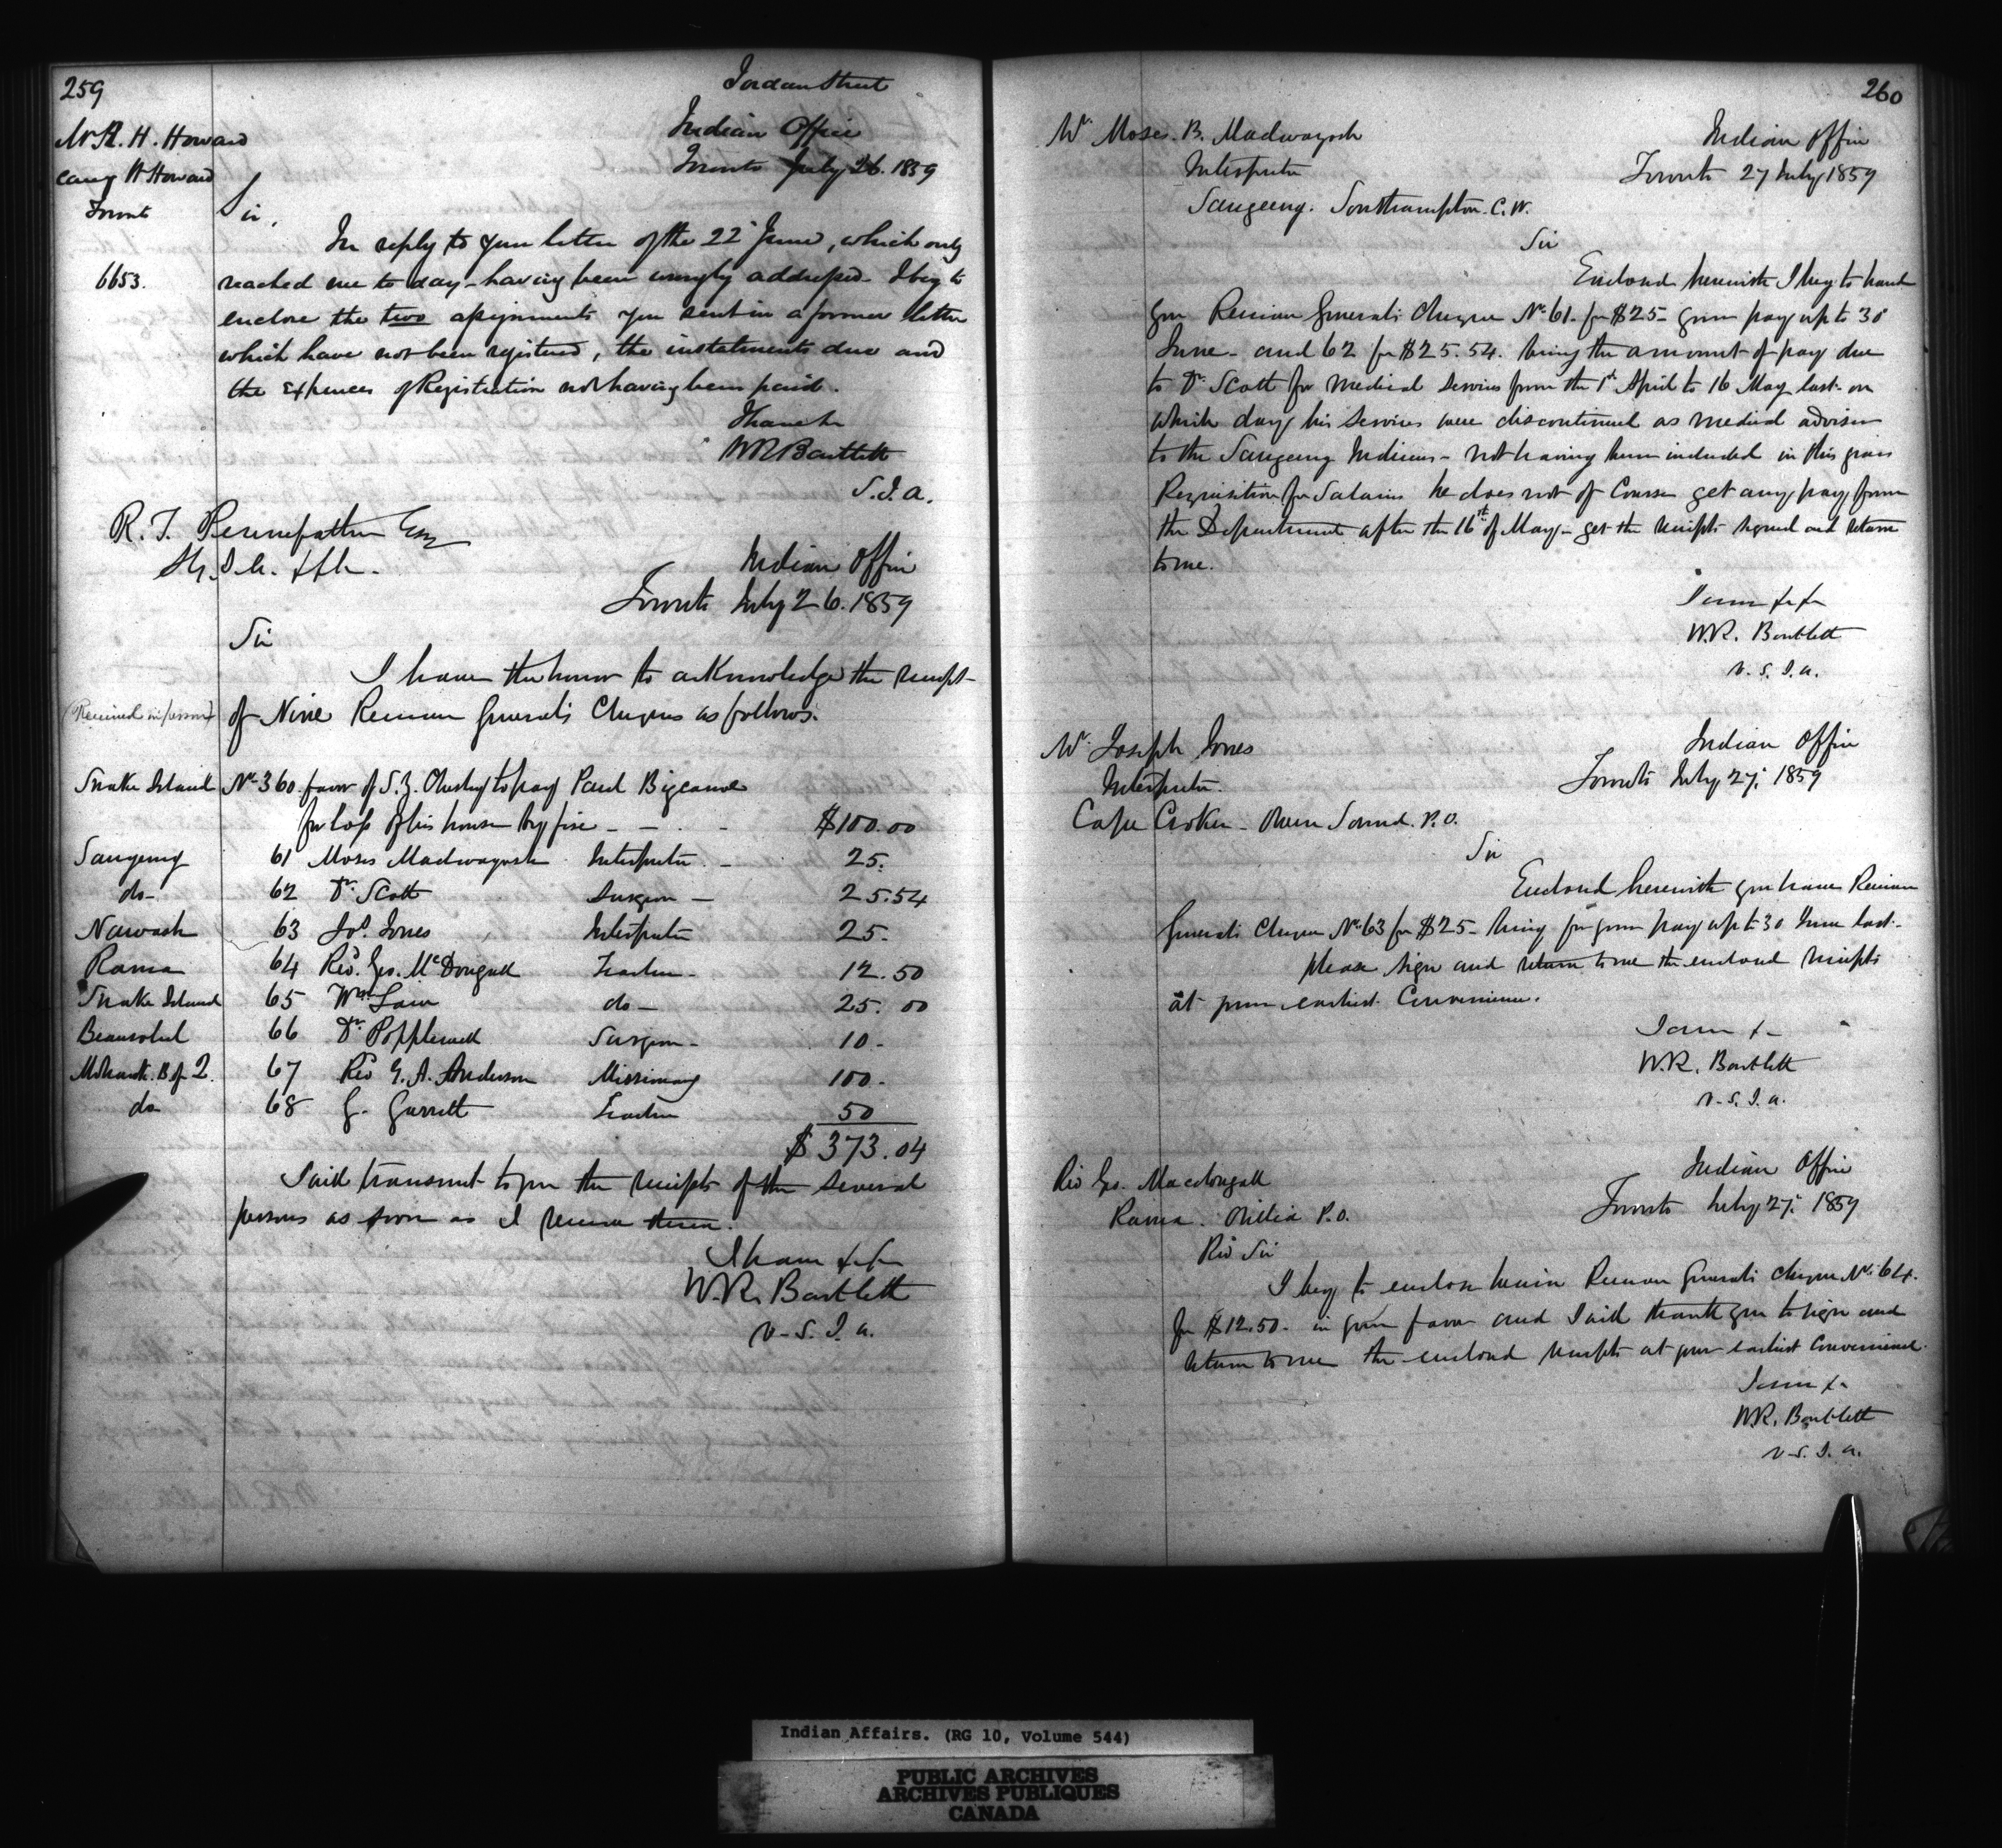 259
Jordan Street
Indian Office
Toronto July 26. 1859
Mr R. H. Howard
care H Howard
Toronto
Sir,
In reply to your letter of the 22d June, which only
6653.
reached me to day - having been wrongly addressed. I beg to
enclose the two assignments you sent in a former letter
which have not been registered, the instalments due and
the expenses of Registration not having been paid.
I have &c
W R Bartlett
S. I. A.
R. T. Pennefather Esq
S. I. A. &c &c.
Indian Office
Toronto July 26. 1859
Sir
I have the honor to acknowledge the receipt
(Received in person) of Nine Receiver General's Cheques as follows.
Snake Island No 360 favor of S. Z. to pay Paul Bigcanoe
for loss of his house by fire - - - $100.00
Saugeeng 61 Moses Madwayosh Interpreter - 25.
do - 62 Dr. Scott Surgeon - 25.54
Nawash 63 Jos. Jones Interpreter 25.
Rama 64 Rev. Geo. McDougall Teacher - 12.50
Snake Island 65 Wm Law do - 25.00
Beausoleil 66 Dr Popplewell Surgeon - 10 -
Mohawk. B of 2. 67 Rev G. A. Anderson Missionary 100 -
do 68 G. Garrett Teacher 50
$ 373.04
I will transmit to you the receipts of the several
persons as soon as I receive them.
I have &c &c
W. R. Bartlett
V. S. I. A.
260
Mr Moses. B. Madwayosh
Indian Office
Interpreter
Toronto 27 July 1859
Saugeeng. Southampton. C. W.
Sir
Enclosed herewith I beg to hand
you Receiver General's Cheque No. 61. for $25 - your pay up to 30
June - and 62 for $25.54. being the amount of pay due
to Dr. Scott for medical services from the 1st April to 16 May last - on
which day his services were discontinued as medical adviser
to the Saugeeng Indians - not having been included in this
Requisition for Salaries he does not of Course get any pay from
the Department after the 16th of May - get the receipts signed and return
to me.
I am &c &c
W. R. Bartlett
V. S. I. A.
Mr. Joseph Jones
Indian Office
Interpreter.
Toronto July 27. 1859
Cape Croker - Owen Sound. P. O.
Sir
Enclosed herewith you have Receiver
General's Cheque No. 63 for $25 - being for your pay up to 30 June last -
please sign and return to me the enclosed receipts
at your earliest Convenience.
I am &c
W. R. Bartlett
V. S. I. A.
Rev Geo. Macdougall
Indian Office
Rama. Orillia P. O.
Toronto July 27. 1859
Rev Sir
I beg to enclose herein Receiver General's cheque No. 64.
for $12.50. in your favor and I will thank you to sign and
return to me the enclosed receipts at your earliest Convenience.
I am &c
W. R. Bartlett
V. S. I. A.
Indian Affairs. (RG 10, Volume 544)
PUBLIC ARCHIVES
ARCHIVES PUBLIQUES
CANADA